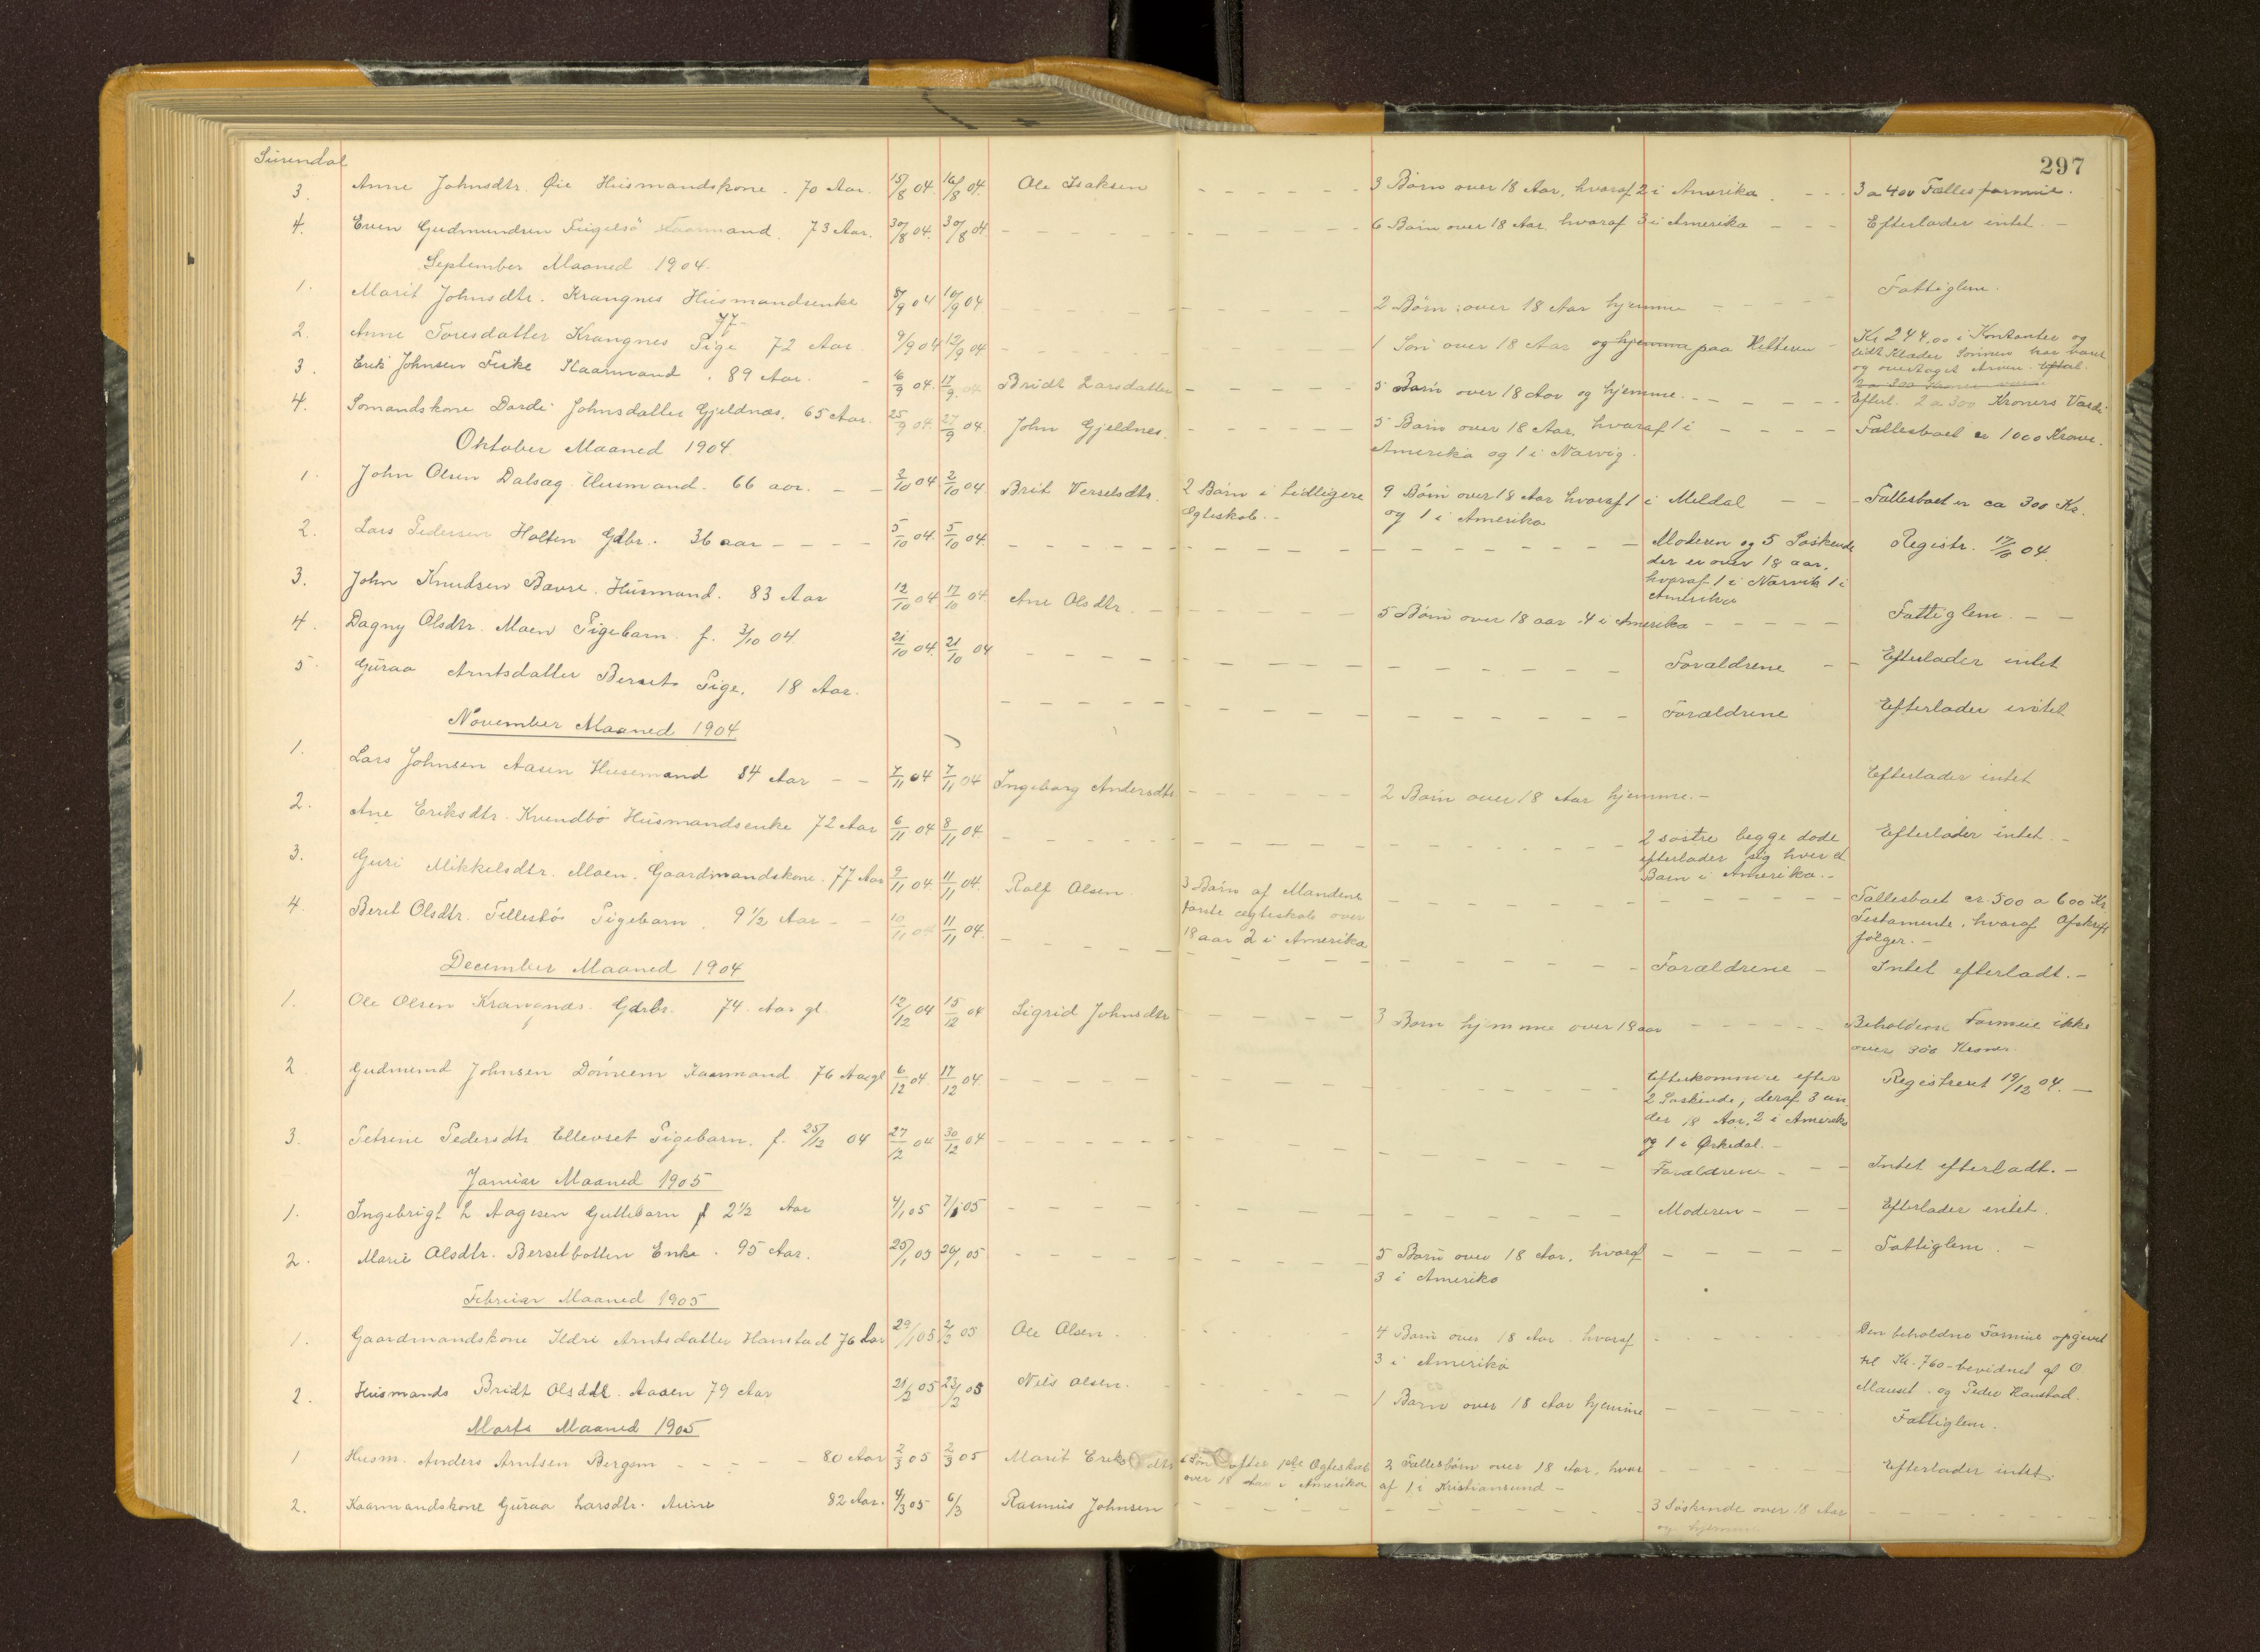 297
Surendal
3. Anne Johnsdtr. Øie Husmandskone. 70 Aar. 15/8 04. 16/8 04. Ole Isaksen - - - - - - 3 Børn over 18 Aar, hvoraf 2 i Amerika. - - - 3 a 400 Fælles formue.
4. Even Gudmundsen Kaarmand. 73 Aar. 30/8 04. 30/8 04 - - - - - - 6 Børn over 18 Aar. hvoraf 3 i Amerika - - - Efterlader intet. -
September Maaned 1904.
1. Marit Johnsdtr. Krangnes Husmandsenke 77 8/9 04 10/9 04. - - - - - - 2 Børn over 18 Aar hjemme - - - - - Fattiglem.
2. Anne Toresdatter Krangnes Pige 72 Aar. 9/9 04 12/9 04 - - - - - - 1 Søn over 18 Aar og hjemme paa Hitteren - Kr 244,00 i Kontanter og
lidt Klæder Sønnen har
og overtaget Arven.
3. Erik Johnsen Kaarmand. 89 Aar. - 16/9 04. 17/9 04 Bridt Larsdatter - - - - - 5 Børn over 18 Aar og hjemme. - - - - - Efterl. 2 a 300 Kroners Værdi
4. Somandskone Dordi Johnsdatter Gjeldnæs. 65 Aar. 25/9 04. 27/9 04. John Gjeldnes. - - - - - - 5 Børn over 18 Aar, hvoraf 1 i - - - - Fællesboet er 1000 Kroner.
Amerika og 1 i Narvig.
Oktober Maaned 1904.
1. John Olsen Dalsæg Husmand. 66 aar. - - 2/10 04. 2/10 04 Brit Verselsdtr. 2 Børn i tidligere 9 Børn over 18 Aar hvoraf 1 i Meldal - - - Fællesboet er ca 300 Kr.
Ægteskab. - og 1 i Amerika
2. Lars Pedersen Holten Gdbr. 36 aar - - - - 5/10 04. 5/10 04. - - - - - - Moderen og 5 Søskende Registr. 17/10 04.
der er over 18 aar,
hvoraf 1 i Narvik 1 i
Amerika
3. John Knudsen Bævre. Husmand. 83 Aar 12/10 04 17/10 04 Ane Olsdtr. - - - - - 5 Børn over 18 aar. 4 i Amerika - - - - - Fattiglem. - -
4. Dagny Olsdtr. Moen Pigebarn. f. 3/10 04. 21/10 04. 21/10 04 - - - - - - Forældrene - - Efterlader intet
5. Guraa Arntsdatter Berset Pige, 18 Aar. - - - - - - Forældrene Efterlader intet
November Maaned 1904
1. Lars Johnsen Aasen Husemand 84 Aar - - 7/11 04 7/11 04 Ingeborg Andersdtr - - - - - - 2 Børn over 18 Aar hjemme. - Efterlader intet
2. Ane Eriksdtr. Kvendbø Husmandsenke 72 Aar 6/11 04 8/11 04. - - - - - - 2 søstre begge døde Efterlader intet. -
efterlader sig hver et
Barn i Amerika. -
3. Guri Mikkelsdtr. Moen. Gaardmandskone. 77 Aar 9/11 04. 11/11 04. Rolf Olsen. 3 Børn af Mandens - - - - - - Fællesboet er 500 a 600 Kr
første ægteskab over Testamente, hvoraf Afskrift
18 aar 2 i Amerika følger. -
4. Beret Olsdtr. Tellesbø Pigebarn. 9 1/2 Aar - - 10/11 04 11/11 04. - - - - - - Forældrene - Intet efterladt. -
December Maaned 1904
1. Ole Olsen Krangnæs. Gdrbr. 74. Aar gl. 12/12 04 15/12 04 Sigrid Johnsdtr - - - - - 3 Børn hjemme over 18 aar - - - - - Beholdene Formue ikke
over 300 Kroner.
2 Gudmund Johnsen Kaarmand 76 Aar gl 6/12 04. 17/12 04. - - - - - - Efterkommere efter Registreret 19/12 04. -
2 Søskende, deraf 3 un
der 18 Aar, 2 i Amerika
og 1 i Ørkedal. -
3. Petrine Pedersdtr Ellevset Pigebarn. f. 25/12 04 27/12 04 30/12 04 - - - - - - Forældrene - - - Intet efterladt. -
Januar Maaned 1905
1. Ingebrigt L Aagesen Guttebarn 2 1/2 Aar 4/1 05 7/1 05 - - - - - - Moderen - - - Efterlader intet.
2. Marie Olsdtr. Bersetbotten Enke. 95 Aar. 25/1 05 26/1 05 - - - - - - 5 Børn over 18 Aar, hvoraf - - - - - Fattiglem. -
3 i Amerika
Februar Maaned 1905
1. Gaardmandskone Ildri Arntsdatter Hanstad 76 Aar 29/1 05 2/2 05 Ole Olsen. - - - - - 4 Børn over 18 Aar hvoraf - - - - - Den beholdne Formue opgivet
3 i Amerika til Kr. 760 - bevidnet af O
Mauset. og Peder Hanstad.
2. Husmands Bridt Olsdtr. Aasen 79 Aar 21/2 05 23/2 05 Nels Olsen. - - - - - 1 Barn over 18 Aar hjemme - - - - - Fattiglem.
Marts Maaned 1905
1 Husm. Anders Arntsen Bergem - - - - - 80 Aar 2/3 05 2/3 05 Marit Eriksdtr efter 1ste Ægteskab 2 Fællesbørn over 18 Aar, hvor - - - - - Efterlader intet.
over 18 Aar i Amerika af 1 i Kristiansund -
2. Kaarmandskone Guraa Larsdtr. Aune 82 Aar. 4/3 05 6/3 Rasmus Johnsen - - - - - - 3 Søskende over 18 Aar - - - - - -
og hjemme